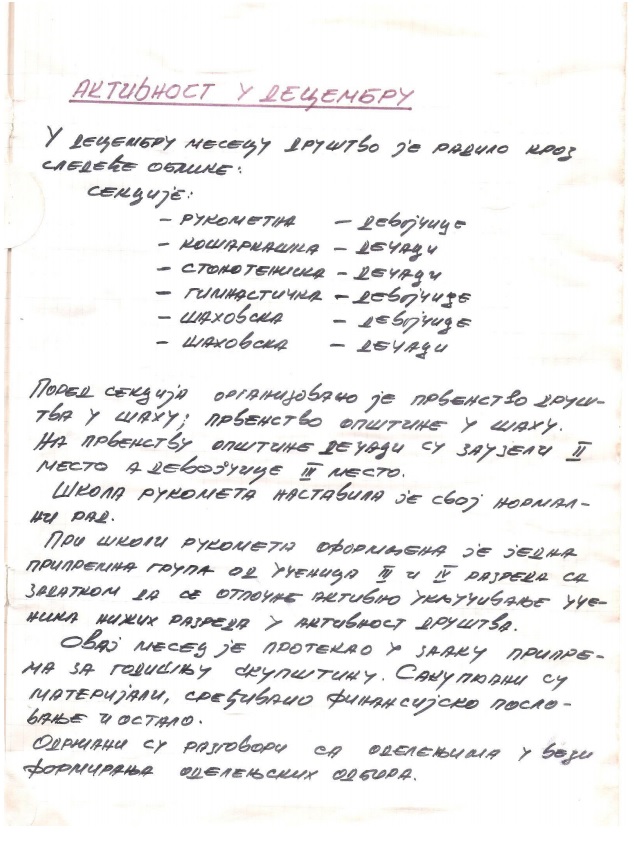 АКТИВНОСТ У ДЕЦЕМБРУ
У ДЕЦЕМБРУ МЕСЕЦУ ДРУШТВО ЈЕ РАДИЛО КРОЗ
СЛЕДЕЋЕ ОБЛИКЕ:
СЕКЦИЈЕ:
– РУКОМЕТНА – ДЕВОЈЧИЦЕ
– КОШАРКАШКА – ДЕЧАЦИ
– СТОНОТЕНИСКА – ДЕЧАЦИ
– ГИМНАСТИЧКА – ДЕВОЈЧИЦЕ
– ШАХОВСКА – ДЕВОЈЧИЦЕ
– ШАХОВСКА – ДЕЧАЦИ
ПОРЕД СЕКЦИЈА ОРГАНИЗОВАНО ЈЕ ПРВЕНСТВО ДРУШ-
ТВА У ШАХУ; ПРВЕНСТВО ОПШТИНЕ У ШАХУ.
НА ПРВЕНСТВУ ОПШТИНЕ ДЕЧАЦИ СУ ЗАУЗЕЛИ II
МЕСТО А ДЕВОЈЧИЦЕ III МЕСТО.
ШКОЛА РУКОМЕТА НАСТАВИЛА ЈЕ СВОЈ НОРМАЛ-
НИ РАД.
ПРИ ШКОЛИ РУКОМЕТА ОФОРМЉЕНА ЈЕ ЈЕДНА
ПРИПРЕМНА ГРУПА ОД УЧЕНИЦА III И IV РАЗРЕДА СА
ЗАДАТКОМ ДА СЕ ОТПОЧНЕ АКТИВНО УКЉУЧИВАЊЕ УЧЕ-
НИКА НИЖИХ РАЗРЕДА У АКТИВНОСТ ДРУШТВА.
ОВАЈ МЕСЕЦ ЈЕ ПРОТЕКАО У ЗНАКУ ПРИПРЕ-
МА ЗА ГОДИШЊУ СКУПШТИНУ. САКУПЉАНИ СУ
МАТЕРИЈАЛИ, СРЕЂИВАНО ФИНАНСИЈСКО ПОСЛО-
ВАЊЕ И ОСТАЛО.
ОДРЖАНИ СУ РАЗГОВОРИ СА ОДЕЛЕЊИМА У ВЕЗИ
ФОРМИРАЊА ОДЕЛЕЊСКИХ ОДБОРА.